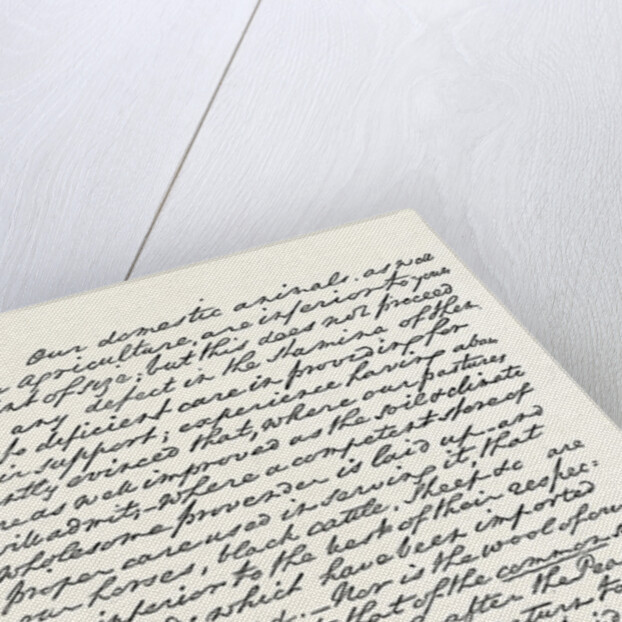 Our domestic animals, as well
agriculture, are inferior to yours
of size; but this does not proceed
any defect in the stamina of them
deficient care in providing for
support; experience having abun
evinced that, where our pastures
as well improved as the soil & climate
admit;—where a competent store of
wholesome provender is laid up—and
proper care used in serving it, that
our horses, black cattle, Sheep &c are
inferior to the best of their respec:
which have been imported
—Nor is the wool of our
that of the common
after the